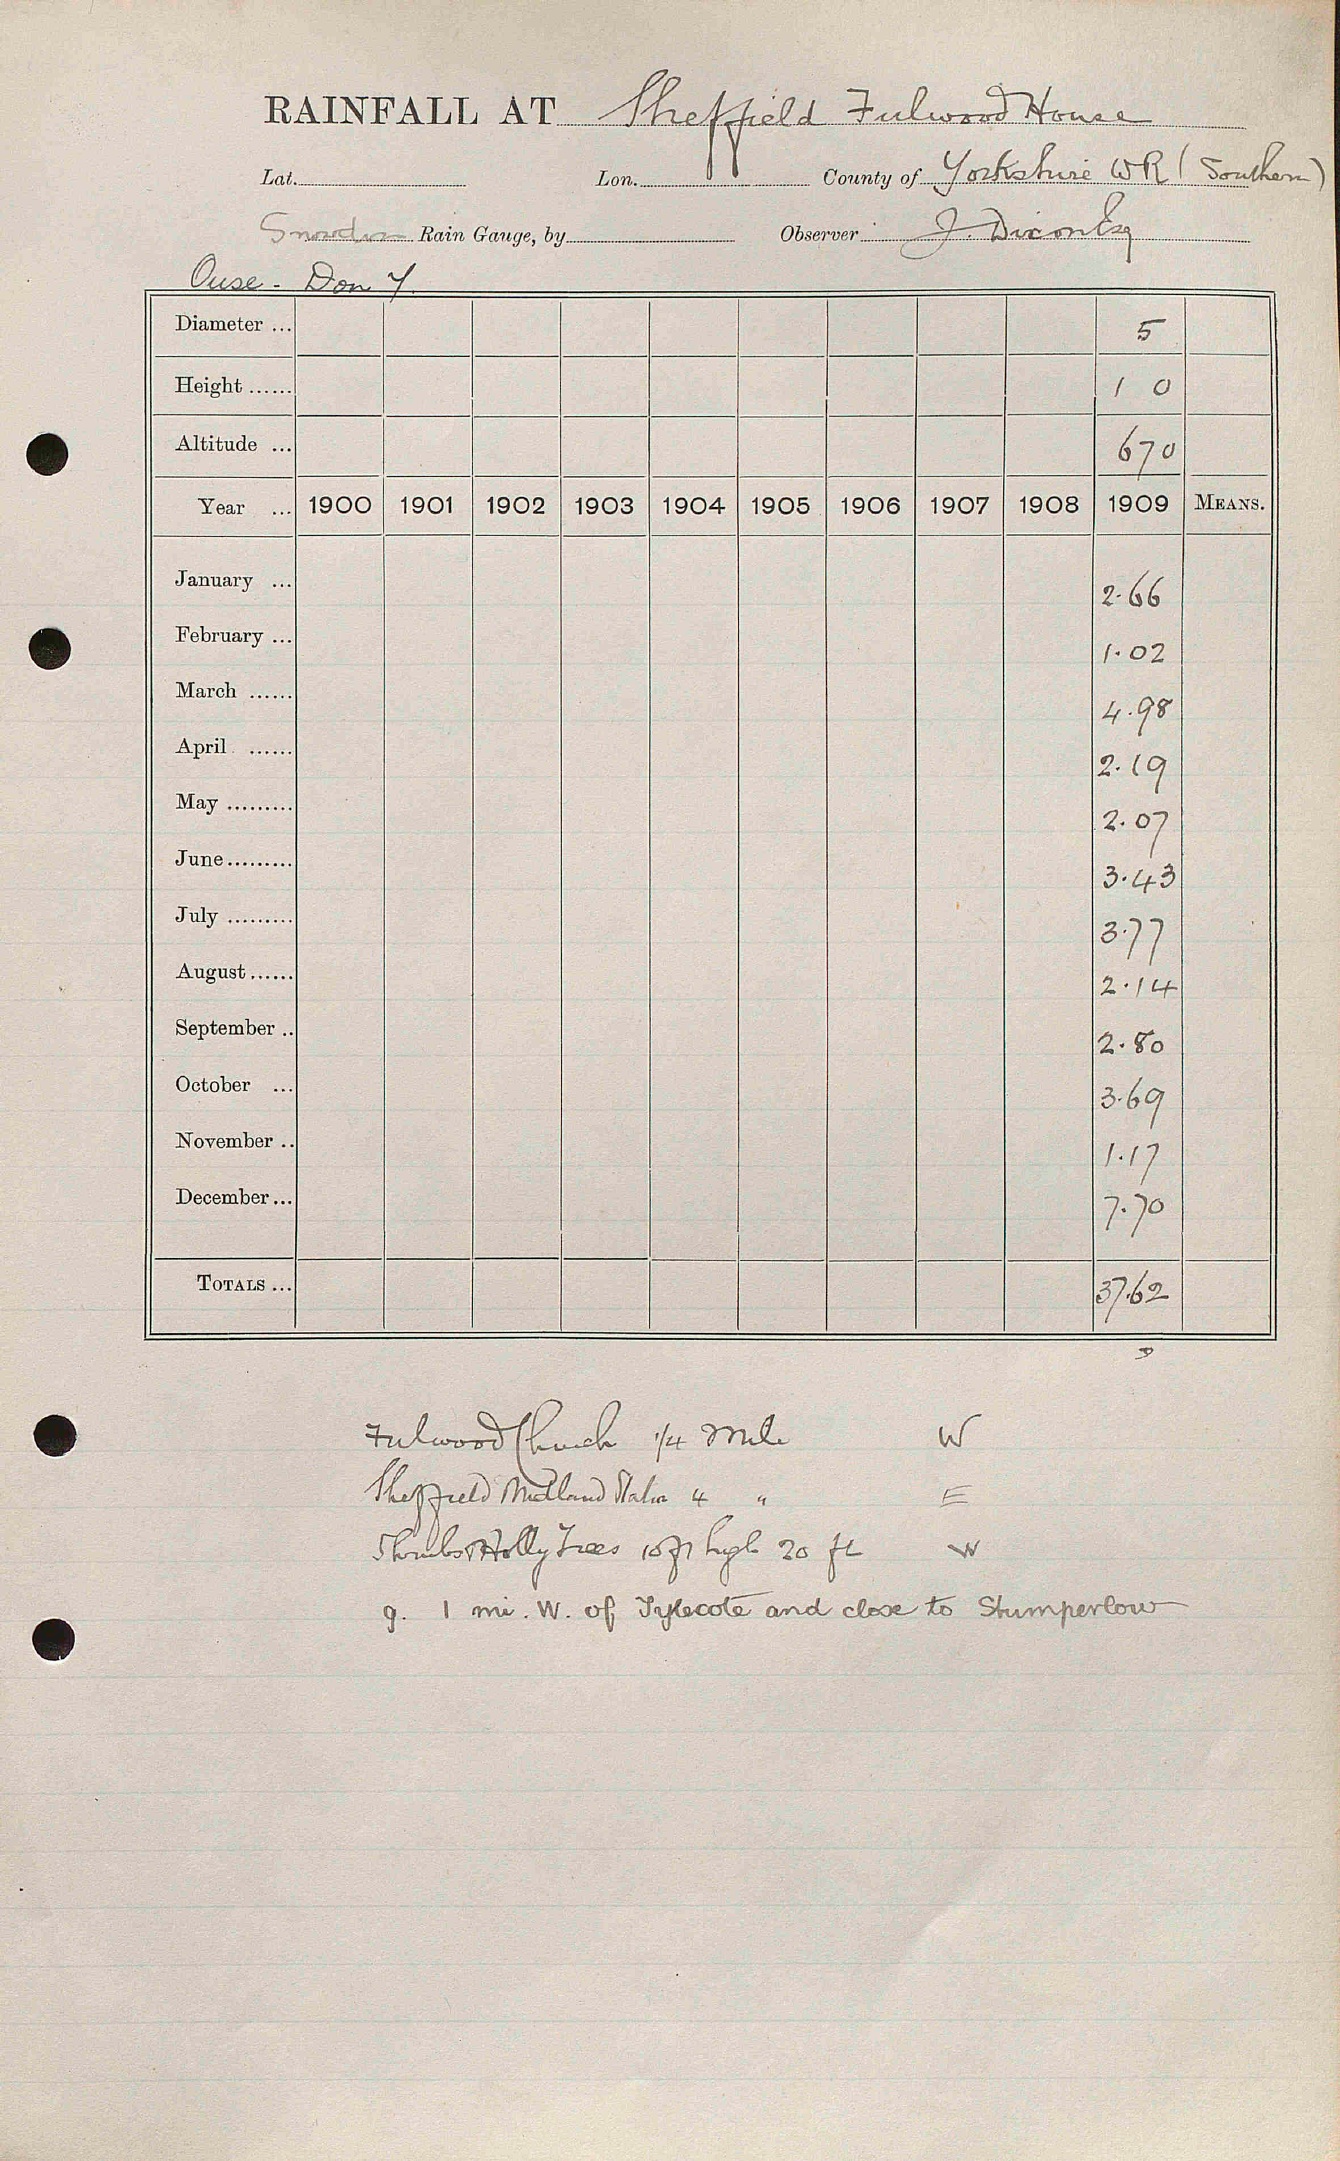 RAINFALL AT Sheffield Fulwood House
Lat. Lon. County of Yorkshire WR (Southern)
Snowdon Rain Gauge, by Observer J. Dixon Esq
Ouse - Don Y.
Diameter ... 5
Height ...... 1 0
Altitude ... 670
Year ... 1900 1901 1902 1903 1904 1905 1906 1907 1908 1909 MEANS.
January ... 2.66
February ... 1.02
March ...... 4.98
April ...... 2.19
May ......... 2.07
June......... 3.43
July ......... 3.77
August...... 2.14
September .. 2.80
October ... 3.69
November .. 1.17
December... 7.70
TOTALS ... 37.62
Fulwood Church 1/4 Mile W
Sheffield Midland Station 4 " E
Shrubs & Holly Trees 10 ft high 20 ft W
g. 1 mi. W. of Tylecote and close to Stumperlow